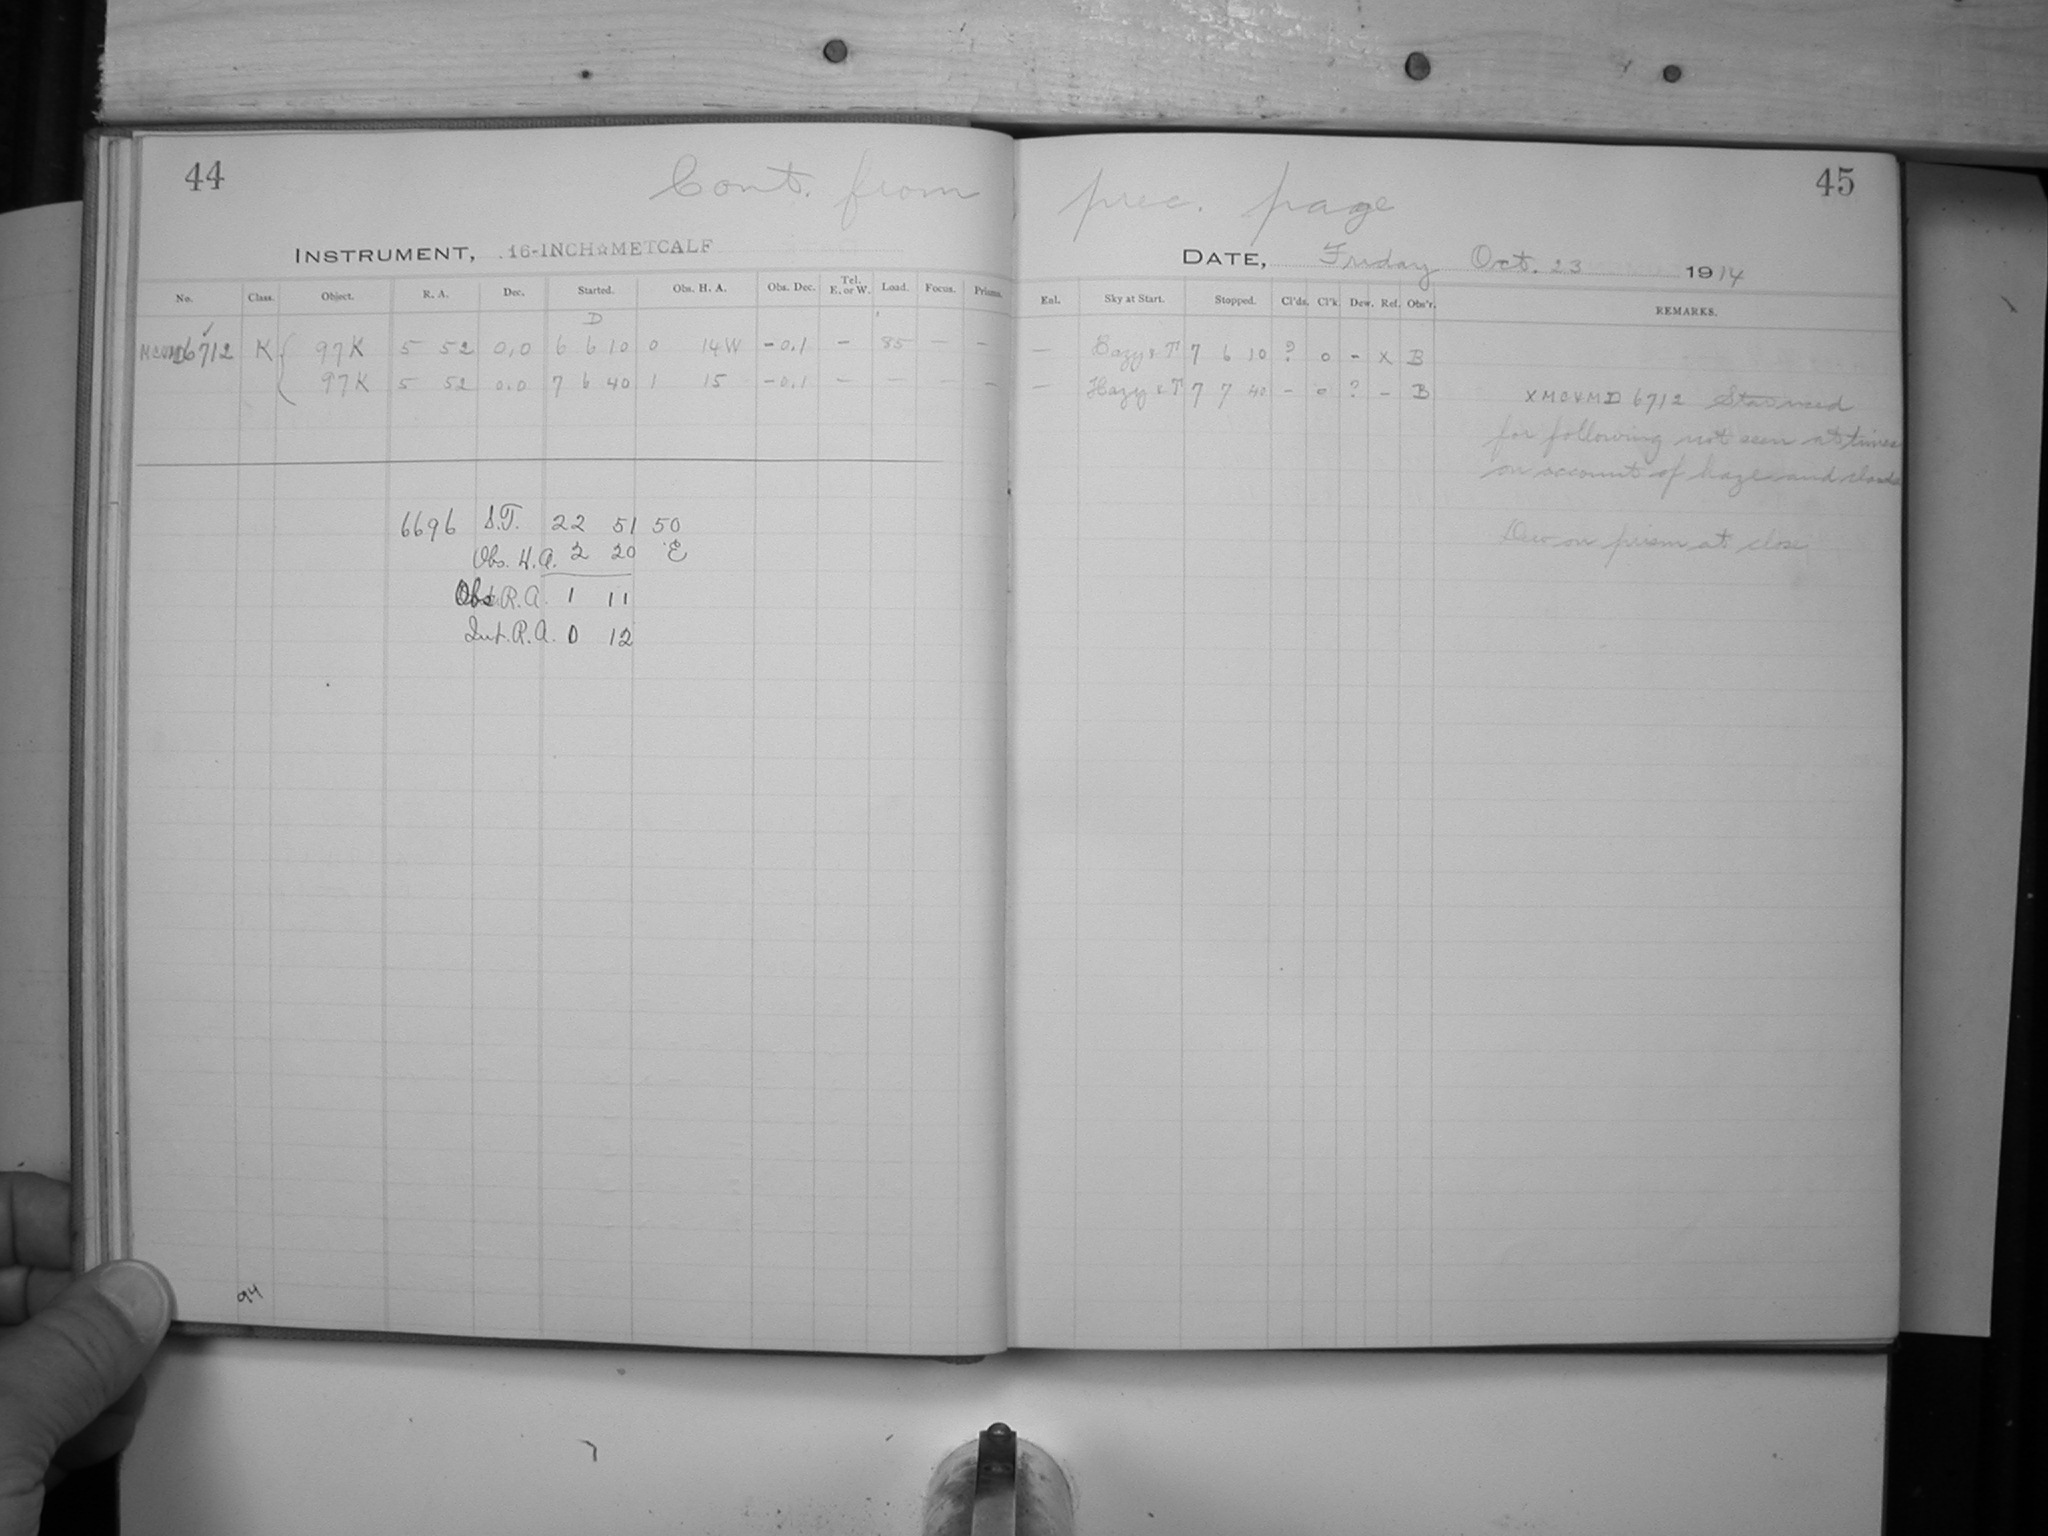 44
45
Cont. from prec. page
INSTRUMENT, 16-INCH☆METCALF
DATE, Friday Oct. 23 1914
No. Class. Object. R. A. Dec. Started. Obs. H. A. Obs. Dec. Tel. E. or W. Load. Focus. Prisms. Enl. Sky at Start. Stopped. Cl'ds. Cl'k. Dew. Ref. Obs'r. REMARKS.
D
MCVMD6712 K 97K 5 52 0.0 6 6 10 0 14W -0.1 - 85 - - - Hazy & T 7 6 10 ? 0 - X B
97K 5 52 0.0 7 6 40 1 15 -0.1 - - - - - Hazy & T 7 7 40 - 0 ? - B
XMCVMD 6712 Star used
for following not seen at times
on account of haze and clouds
Dew on prism at close
6696 S.T. 22 51 50
Obs. H.A. 2 20 E
Obs. R.A. 1 11
Int. R.A. 0 12
94